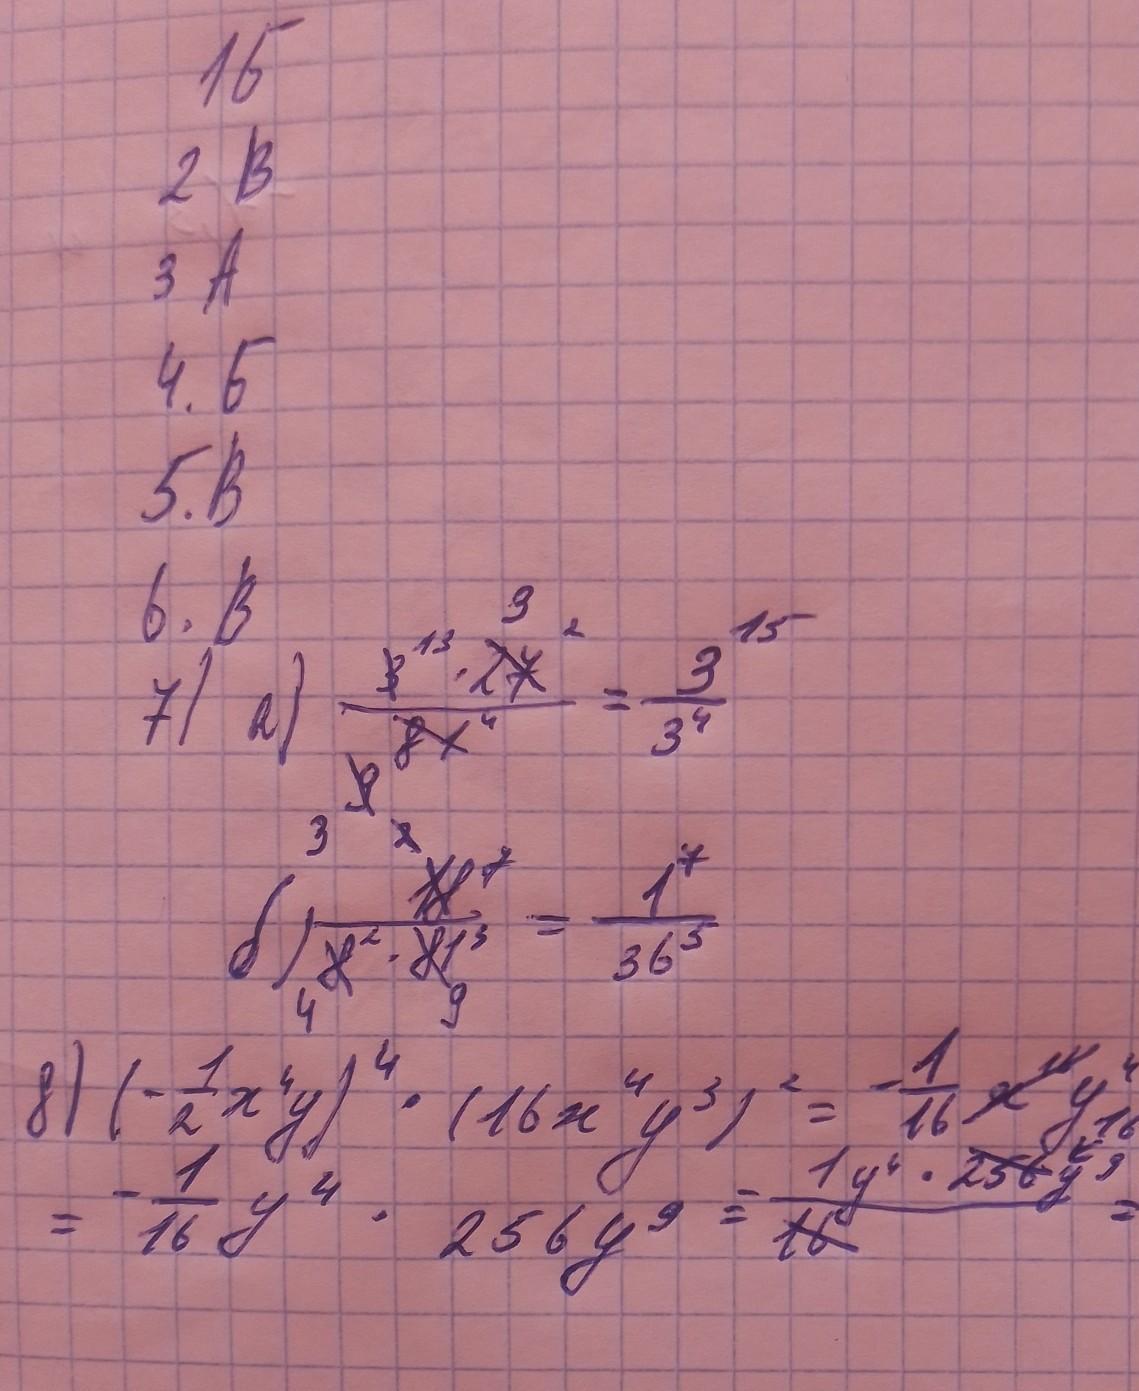 1Б
2 В
3 А
4. Б
5. В
6. В
7) а) (3¹³ · 27²)/(81⁴) = 3¹⁵/3⁴
3 9 9
б) 18⁷/(8² · 81³) = 1⁷/36⁵
3 2 4 9
8) (-1/2 x⁴y)⁴ · (16x⁴y³)² = -1/16 x¹⁶ y⁴
= -1/16 y⁴ · 256y⁹ = (1y⁴ · 256y⁹)/16 =
16